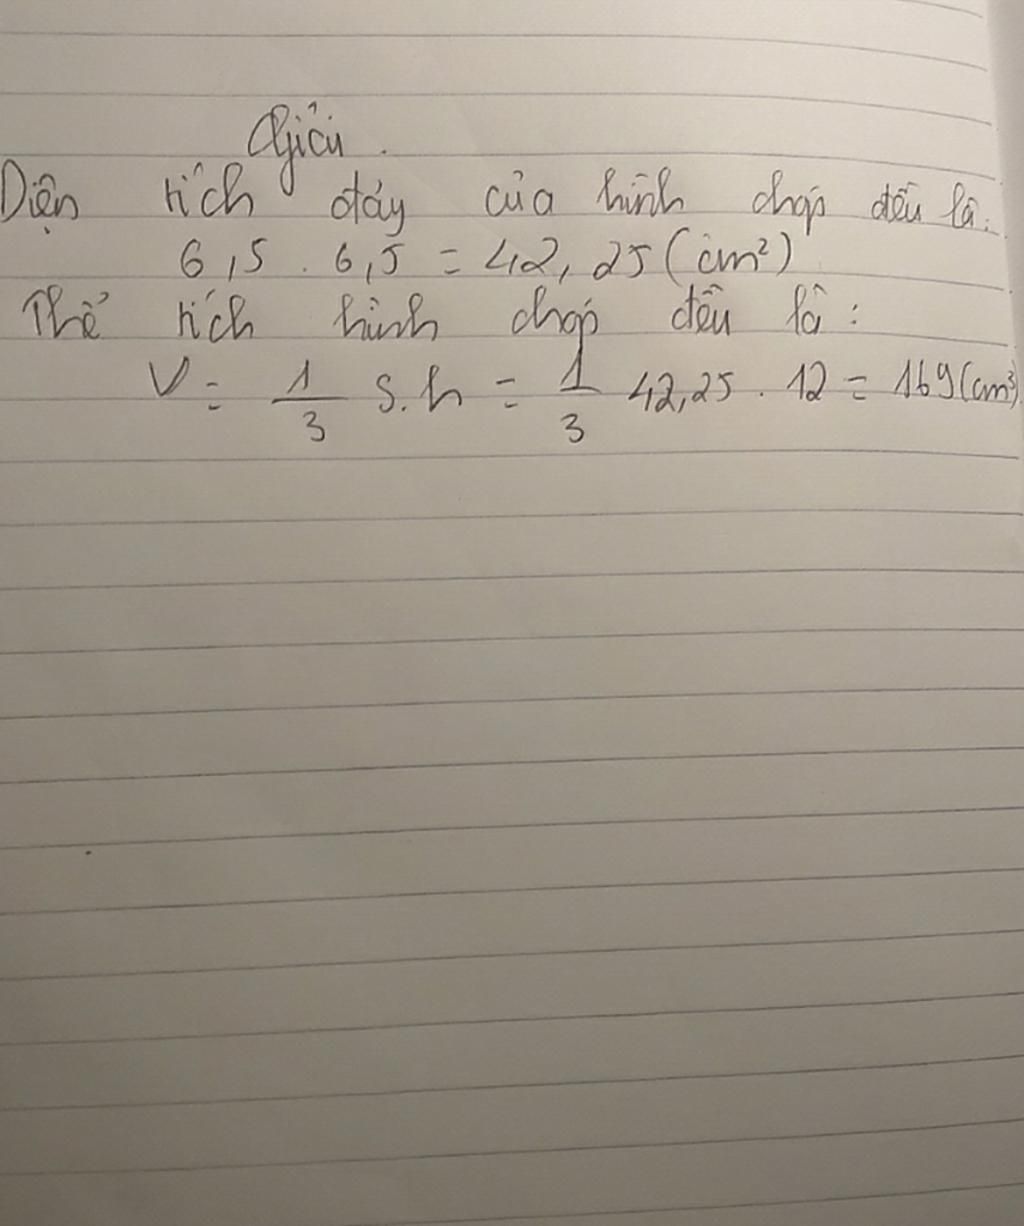 Giải.
Diện tích đáy của hình chóp đều là:
6,5 . 6,5 = 42,25 (cm²)
Thể tích hình chóp đều là:
V = 1/3 S.h = 1/3 42,25 . 12 = 169 (cm³)